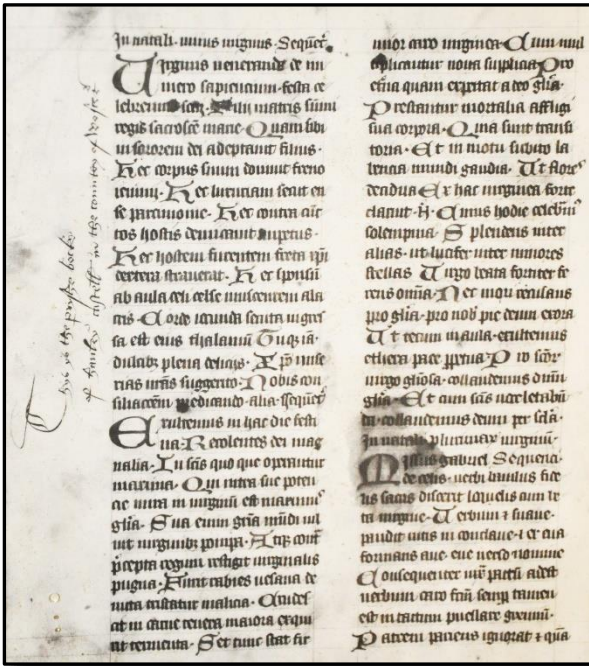 In natali · unius uirginis · Sequēt̄
Uirginis uenerande de nu
mero sapiencium · festa ce
lebremus · Filii matris sūmi
regis sacrosc̄e marie · Quam sibi
in sororem dei adeptauit filius ·
Hec corpus suum domuit freno
ieiunii · Hec luxuriam secuit en
se parcimonie · Hec contra cūc
tos hostis demicauit impetus ·
Hec hostem furentem freta xp̄i
dextera strauerat · Hec sponsū
ab aula celi celse
cris · Corde iocunda scuta ingres
sa est eius thalamū
plena deliciis · Xp̄o mise
rias nr̄as suggerito · Nobis con
predicando · alia · sequēt̄
Exultemus in hac die festi
ua · Recolentes dei mag
nalia · In sc̄is quo que operantur
maxima · Qm̄ mira sue poten
cie mira in uirginū est maxime
gl̄ia · Sua enim gr̄a mūdi uil
uit uirginibȝ pompa · Atqȝ cont̄
p̄cepta regum restigit uirginalis
pugna · Fiunt rabies uesana de
uicta tristatur malicia · Crudes
cat in carne tenera maiora exqui
rit tormenta · Set tunc stat fir
mior caro uirginea · Cum mul
tiplicantur noua supplicia · Pro
et̄na quam expectat a deo gl̄ia ·
Prestantur mortalia affligi
sua corpora · Quia sunt transi
toria · Et in motu subito la
bencia mundi gaudia · Ut flores
decidua · Ex hac uirginea forte
claruit · Cuius hodie celebrīꝰ
solempnia · Splendens inter
alias · ut lucifer inter minores
stellas · Uirgo beata forniter fe
rens omīa · Nec mori recusans
pro gl̄ia · pro nob̄ pie deum exora
Ut tecum in aula · exultemus
etherea pace p̄petua · Pro sc̄or̄
uirgo gl̄iosa · collaudemus d̄nm̄
gl̄ia · Et cum sc̄is uoce letabū
da · collaudemus deum per sc̄la ·
In natali plurimar̄ uirginū ·
Missus gabriel Sequenc̄
de celis · uerbi baiulus fide
lis sacris disserit loquelis cum bea
ta uirgine · Uerbum ⁊ suaue ·
pandit intus in conclaue · ⁊ ex eua
formans aue · eue uerso nomine
Consequenter iux̄ pactū adest
uerbum caro fc̄m̄ semp̄ tamen
est intactum puellare gremiū ·
Patrem pariens ignorat ⁊ quā
Thys ys the prystys boeke
of hanley castell in the countey of worcetꝰ